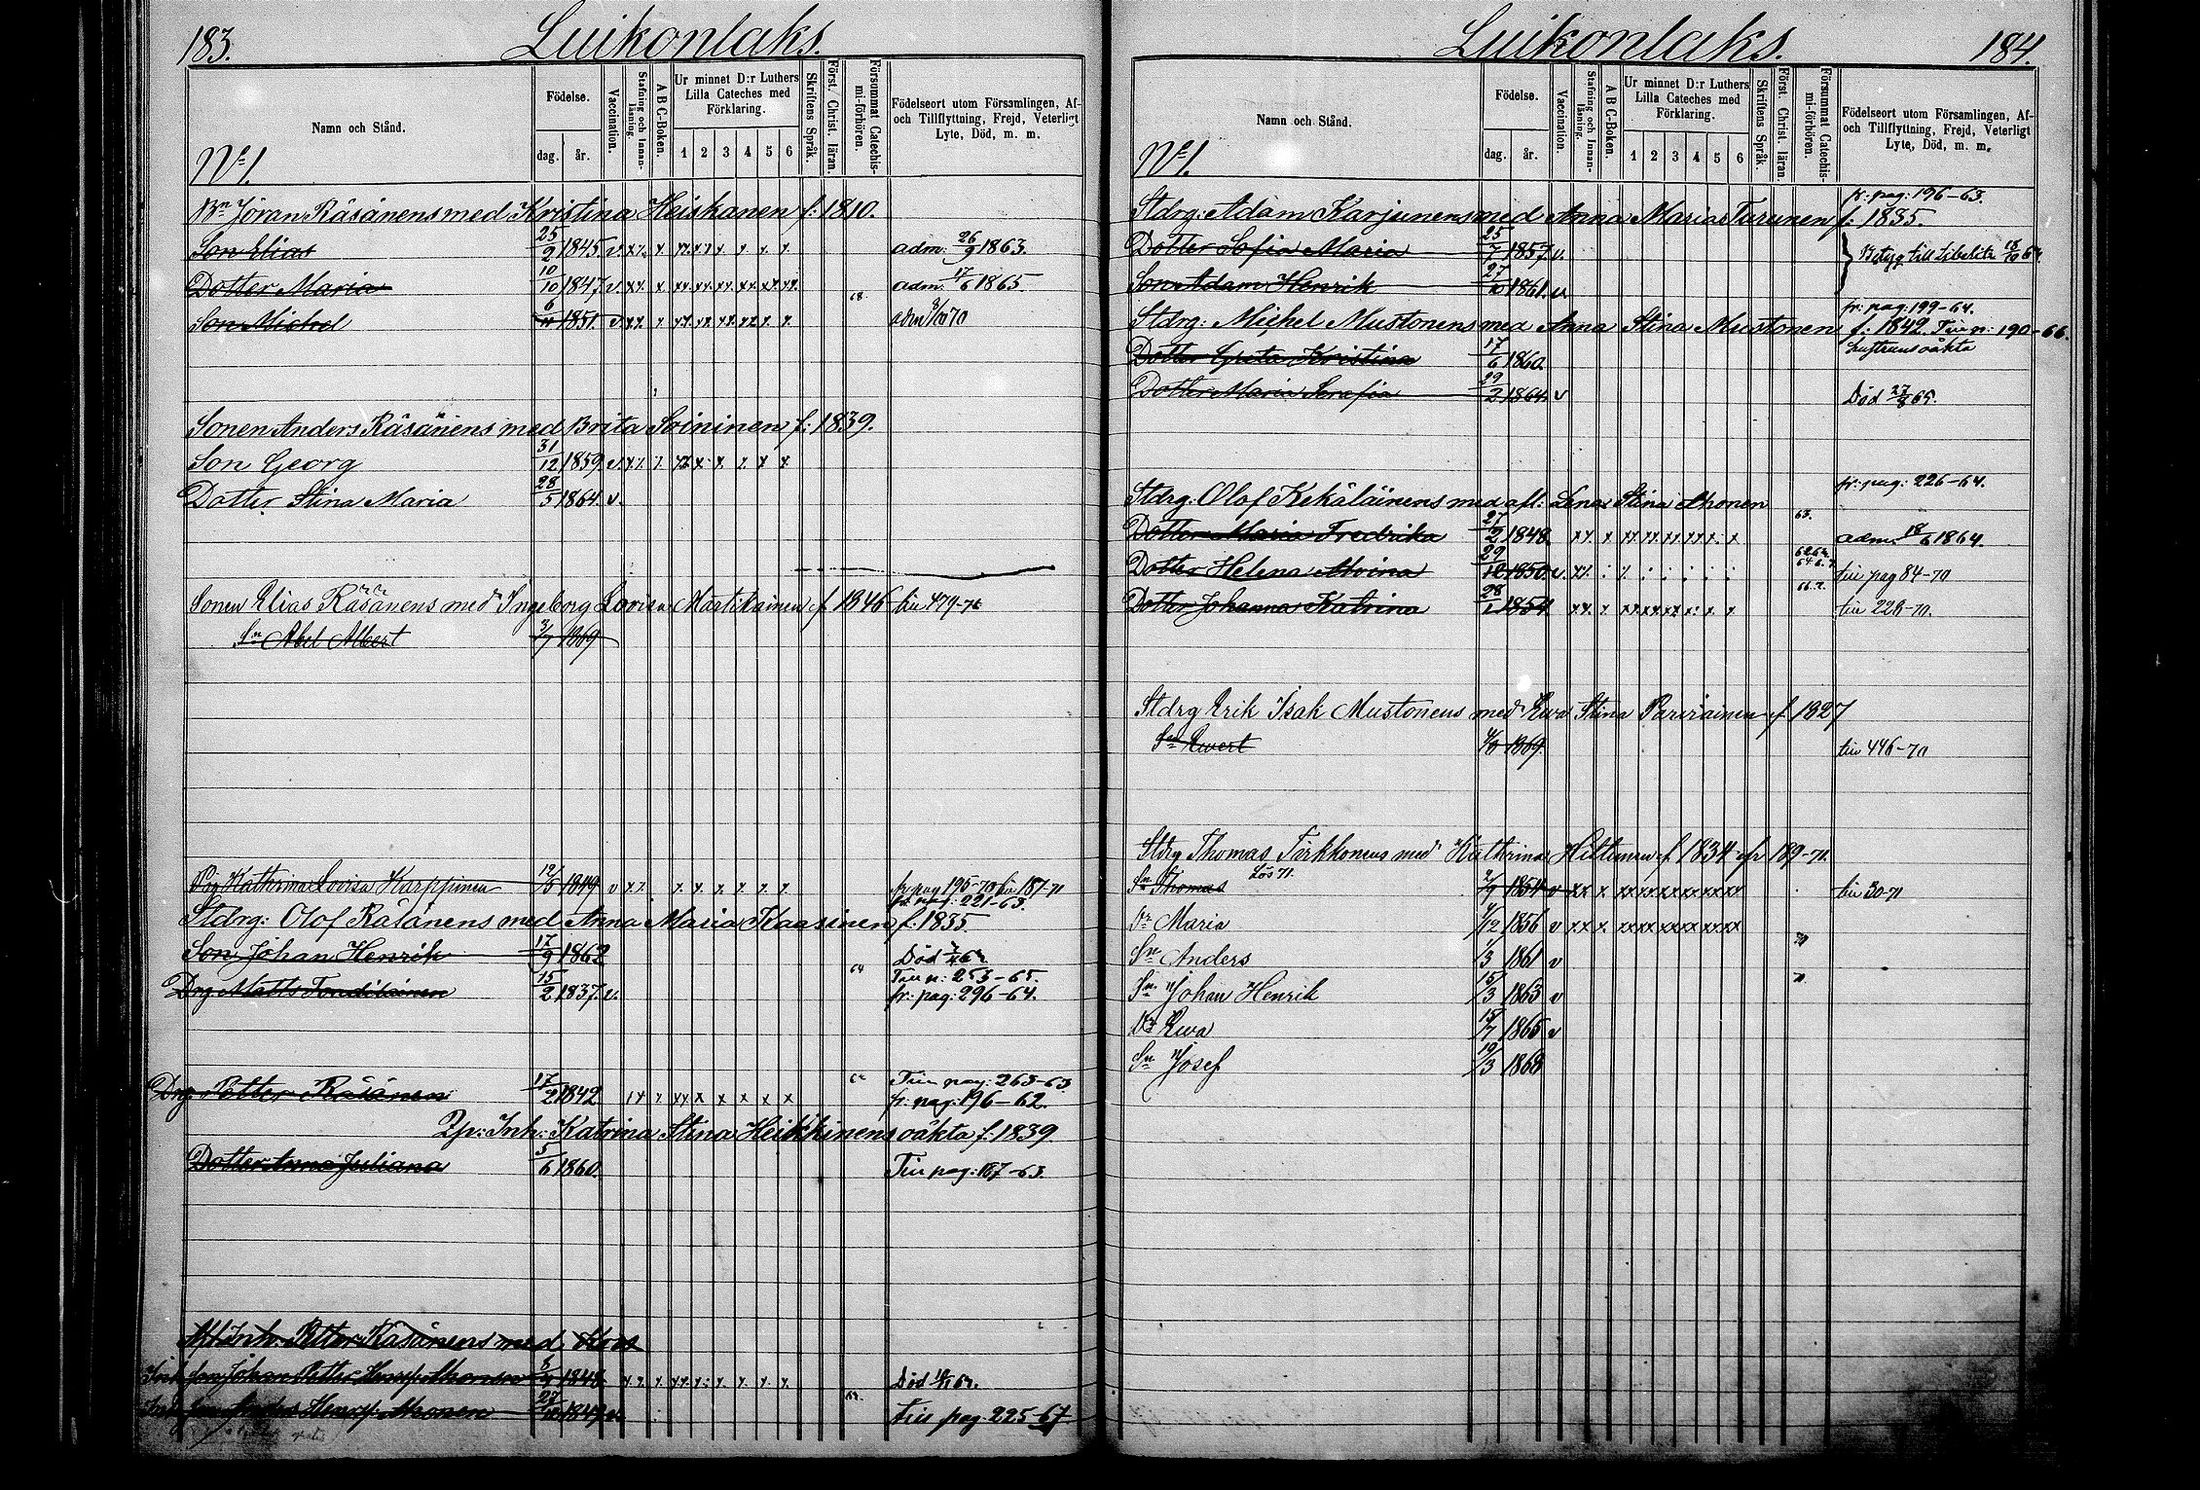 183.
Luikonlaks.
Namn och Stånd.
Födelse.
dag.
år.
Vaccination.
Stafning och Innan-läsning.
A B C-Boken.
Ur minnet D:r Luthers Lilla Cateches med Förklaring.
1 2 3 4 5 6
Skriftens Språk.
Först. Christ. läran.
Försummat Catechis-mi-förhören.
Födelseort utom Församlingen, Af-
och Tillflyttning, Frejd, Veterligt
Lyte, Död, m. m.
No 1.
Bn Jöran Räsänens med Kristina Heiskanen f: 1810.
Son Elias 25/9 1845. v. adm: 26/9 1863.
Dotter Maria 10/10 1847. v. adm: 17/6 1865.
Son Michel 6/11 1851. v. 68.
Sonen Anders Räsänens med Brita Soininen f: 1839.
Son Georg 31/12 1859. v.
Dotter Stina Maria 28/5 1864. v.
Sonen Elias Räsänens med Ingeborg Lovisa Martikainen f 1846
Sn Abel Albert 3/7 1869
Pig Katherina Lovisa Karppinen 1849 v fr pag 195-70 tin 187-71
fr: pag: 221-63.
Stdrg: Olof Räsänens med Anna Maria Kaasinen f: 1835.
Son Johan Henrik 17/9 1862 Död
Tin p: 253-65.
Drg Matts 15/2 1837. v. 64 fr: pag: 296-64.
Tin pag: 263-63
Drg Petter Räsänen 17/2 1842 fr. pag: 196-62.
Inh: Katrina Stina Heikkinens oäkta f. 1839
Dotter Anna Juliana 3/6 1860. Tin pag: 187-63.
Afl Inh: Petter Räsänens med
Son Johan Petter 1848 Död
27 1849 v. tin pag. 225-67
184.
Luikonlaks.
Namn och Stånd.
Födelse.
dag.
år.
Vaccination.
Stafning och Innan-läsning.
A B C-Boken.
Ur minnet D:r Luthers Lilla Cateches med Förklaring.
1 2 3 4 5 6
Skriftens Språk.
Först. Christ. läran.
Försummat Catechis-mi-förhören.
Födelseort utom Församlingen, Af-
och Tillflyttning, Frejd, Veterligt
Lyte, Död, m. m.
No 1.
fr: pag: 196-63.
Stdrg: Adam Karjunens med Anna Maria Turunen f: 1835.
Dotter Sofia Maria 25/7 1857. v. Betyg till Libelits 18/10 64
Son Adam Henrik 27/10 1861. v.
fr: pag: 199-64.
Stdrg: Michel Mustonens med Anna Stina Mustonen f: 1842. Tin p: 190-66.
Dotter Greta Kristina 17/6 1860. hustruns oäkta
Dotter Maria Serafia 29/2 1864. v Död 27/8 65.
fr: pag: 226-64.
Stdrg: Olof Kekäläinens med afl: Lena Stina Ahonen
Dotter Maria Fredrika 27/2 1848. 63. adm: 18/6 1864.
Dotter Helena 29/12 1850. v. tin pag 84-70
Dotter Johanna Katrina 28/1 1854. tin 226-70.
Stdrg Erik Isak Mustonens med Ewa Stina Parviainen f 1827
Sn Evert 1869. tin 446-70
Stdrg Thomas Turkkonens med Kathrina Hiltunen f 1834 fr 189-71.
Sn Thomas Lös 71. 2/9 1854 v tin 30-71
Dr Maria 4/12 1856 v
Sn Anders 1/3 1861 v
Sn Johan Henrik 15/3 1863 v
Dr Ewa 15/7 1865 v
Sn Josef 19/3 1868